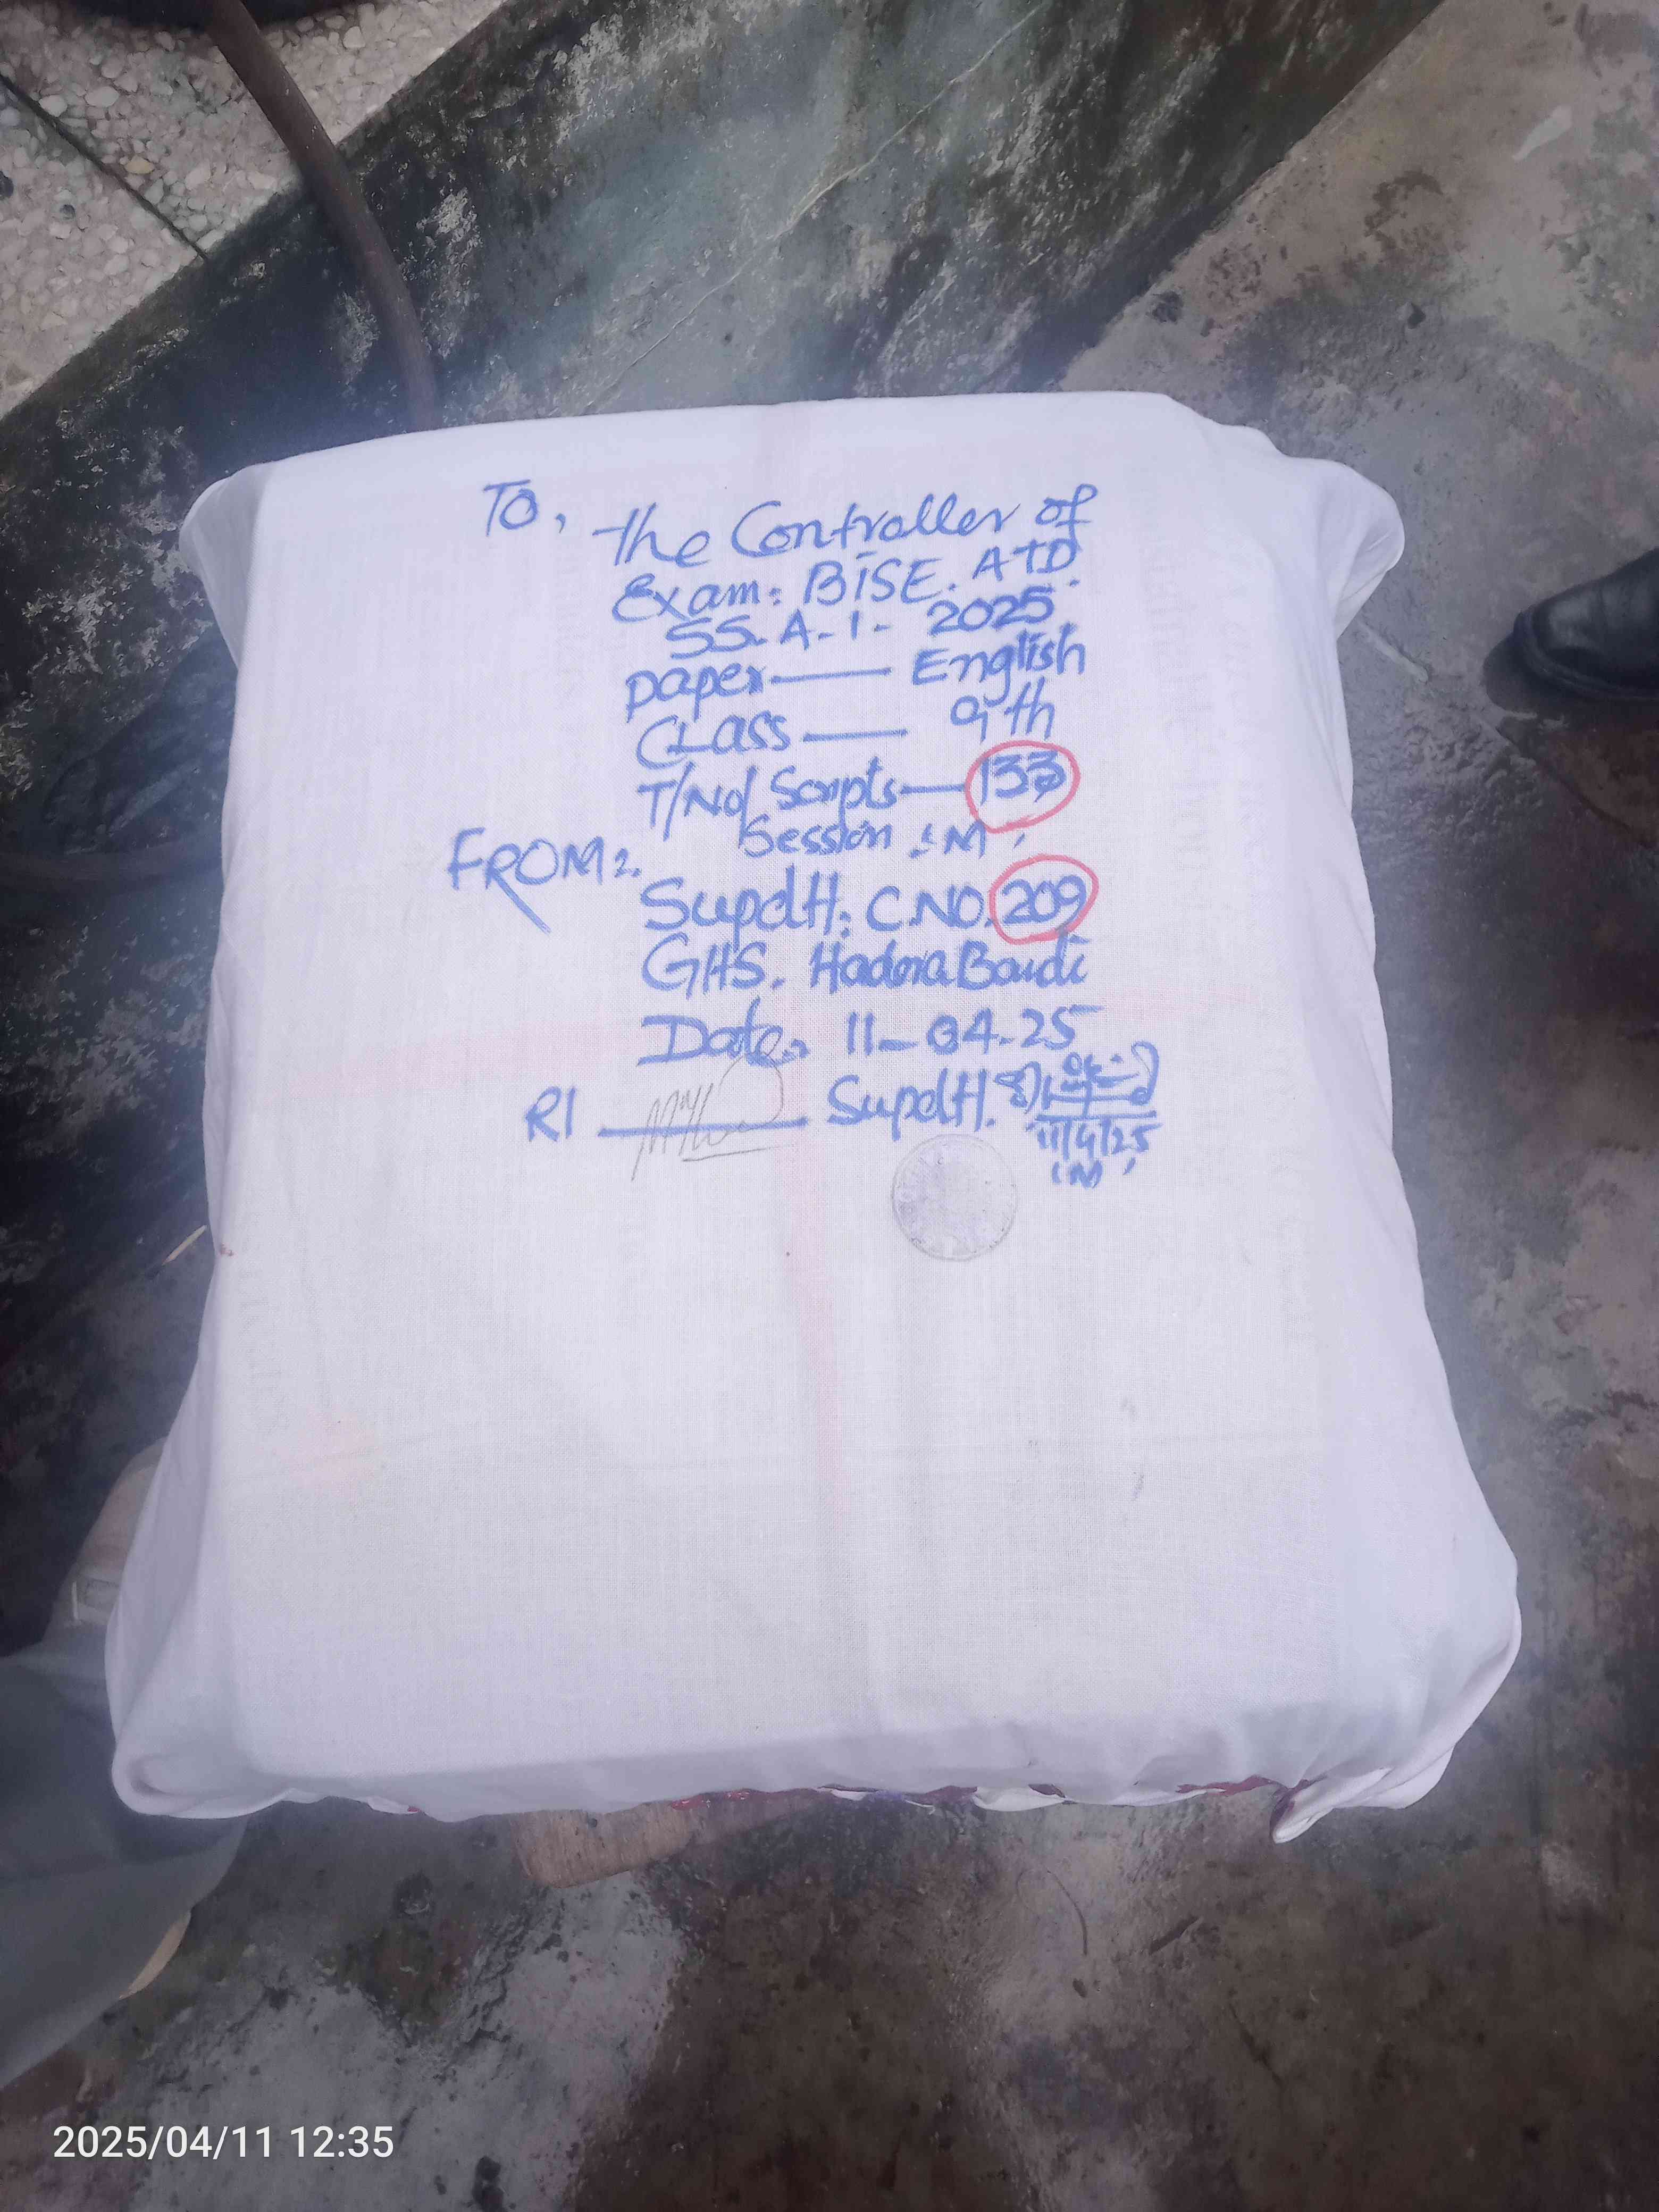 TO,
the Controller of
Exam: BISE. ATD.
SS. A-1- 2025.
paper—— English
CLass —— 9th
T/No/ Scripts— 133
Session 'M'
FROM:
Supdtt: C.NO. 209
GHS. Hadora Bandi
Date: 11-04-25
RI —— Supdtt.
11/4/25
'M'
2025/04/11 12:35